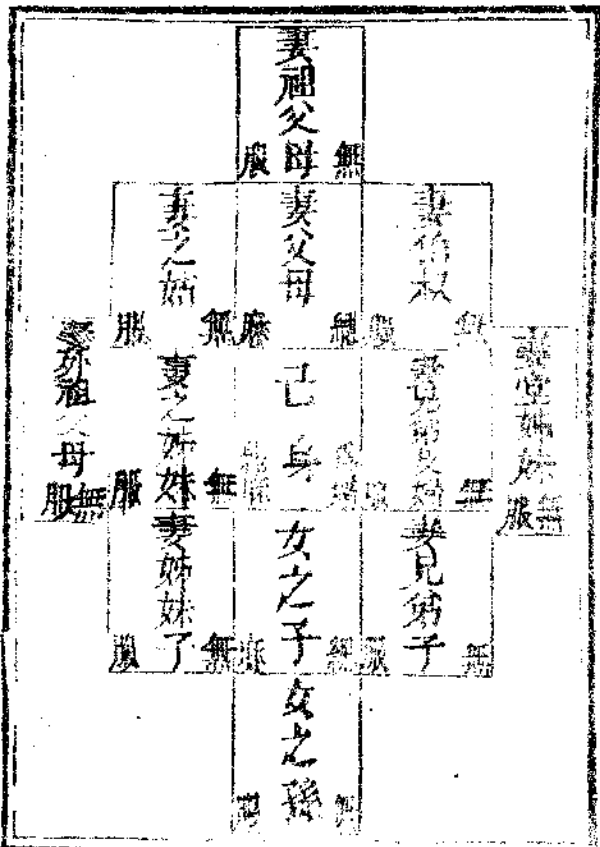 妻祖父母
無服
妻伯叔
無服
妻父母
緦麻
妻之姑
無服
妻堂姊妹
無服
妻兄弟及婦
無服
己身
妻之姊妹
無服
妻外祖父母
無服
妻兄弟子
無服
女之子
緦麻
妻姊妹子
無服
女之孫
無服